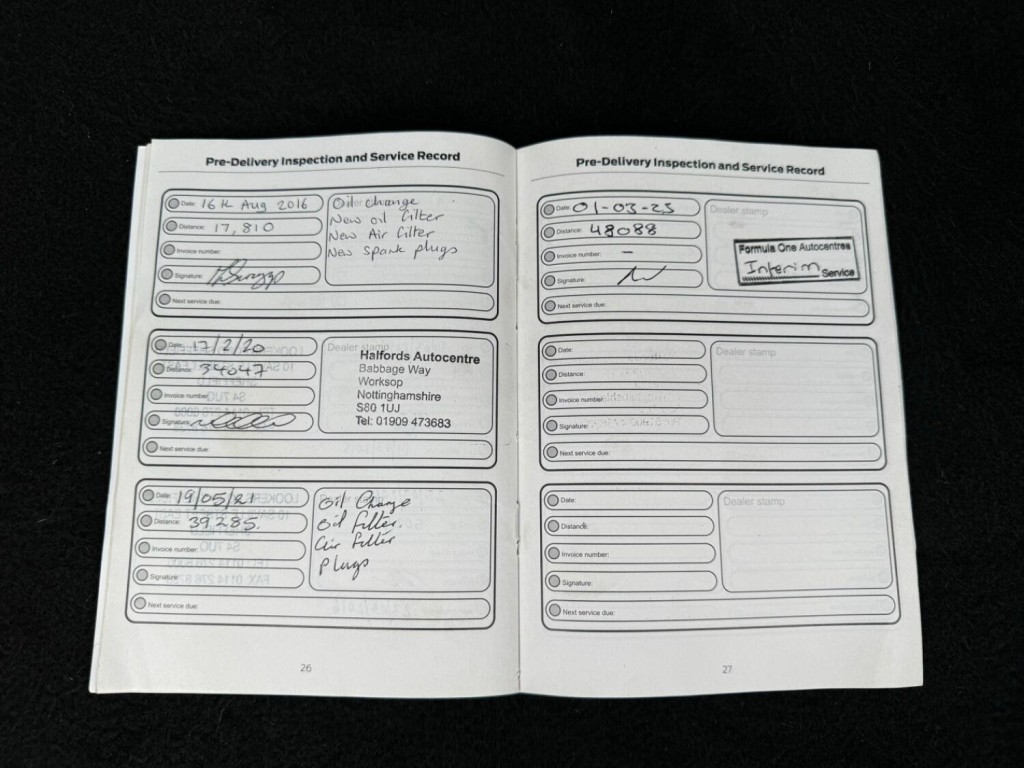 Pre-Delivery Inspection and Service Record
Date: 16th Aug 2016
Distance: 17,810
Invoice number:
Signature:
Next service due:
Oil change
New oil filter
New Air filter
New Spark plugs
Date: 17/2/20
Distance: 34047
Invoice number:
Signature:
Next service due:
Dealer stamp
Halfords Autocentre
Babbage Way
Worksop
Nottinghamshire
S80 1UJ
Tel: 01909 473683
Date: 19/05/21
Distance: 39285.
Invoice number:
Signature:
Next service due:
Oil Change
Oil filter.
air filter
plugs
26
Pre-Delivery Inspection and Service Record
Date: 01-03-23
Distance: 48088
Invoice number: –
Signature:
Next service due:
Dealer stamp
Formula One Autocentres
Interim Service
Date:
Distance:
Invoice number:
Signature:
Next service due:
Dealer stamp
Date:
Distance:
Invoice number:
Signature:
Next service due:
Dealer stamp
27